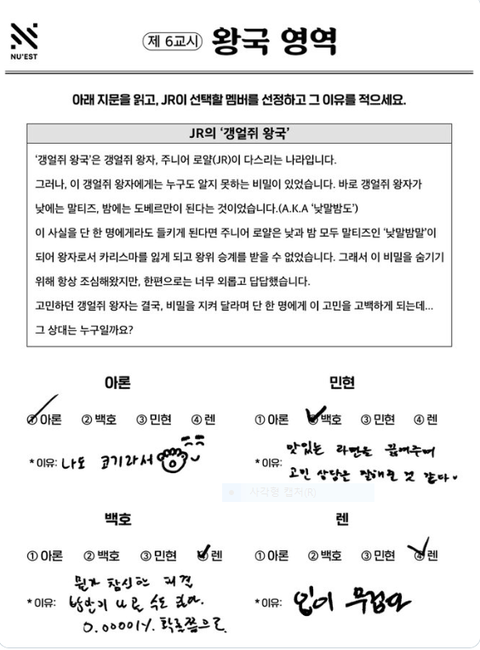 NU'EST
제 6교시 왕국 영역
아래 지문을 읽고, JR이 선택할 멤버를 선정하고 그 이유를 적으세요.
JR의 '갱얼쥐 왕국'
'갱얼쥐 왕국'은 갱얼쥐 왕자, 주니어 로얄(JR)이 다스리는 나라입니다.
그러나, 이 갱얼쥐 왕자에게는 누구도 알지 못하는 비밀이 있었습니다. 바로 갱얼쥐 왕자가
낮에는 말티즈, 밤에는 도베르만이 된다는 것이었습니다.(A.K.A '낮말밤도')
이 사실을 단 한 명에게라도 들키게 된다면 주니어 로얄은 낮과 밤 모두 말티즈인 '낮말밤말'이
되어 왕자로서 카리스마를 잃게 되고 왕위 승계를 받을 수 없었습니다. 그래서 이 비밀을 숨기기
위해 항상 조심해왔지만, 한편으로는 너무 외롭고 답답했습니다.
고민하던 갱얼쥐 왕자는 결국, 비밀을 지켜 달라며 단 한 명에게 이 고민을 고백하게 되는데...
그 상대는 누구일까요?
아론
① 아론 ② 백호 ③ 민현 ④ 렌
* 이유: 나도 코기라서
민현
① 아론 ② 백호 ③ 민현 ④ 렌
* 이유: 맛있는 라면을 끓여주며
고민 상담은 잘해줄 것 같다.
백호
① 아론 ② 백호 ③ 민현 ④ 렌
* 이유: 뭔가 참신한 의견
방안이 나올 수도 있다.
0.00001% 확률쯤으로
렌
① 아론 ② 백호 ③ 민현 ④ 렌
* 이유: 입이 무겁다